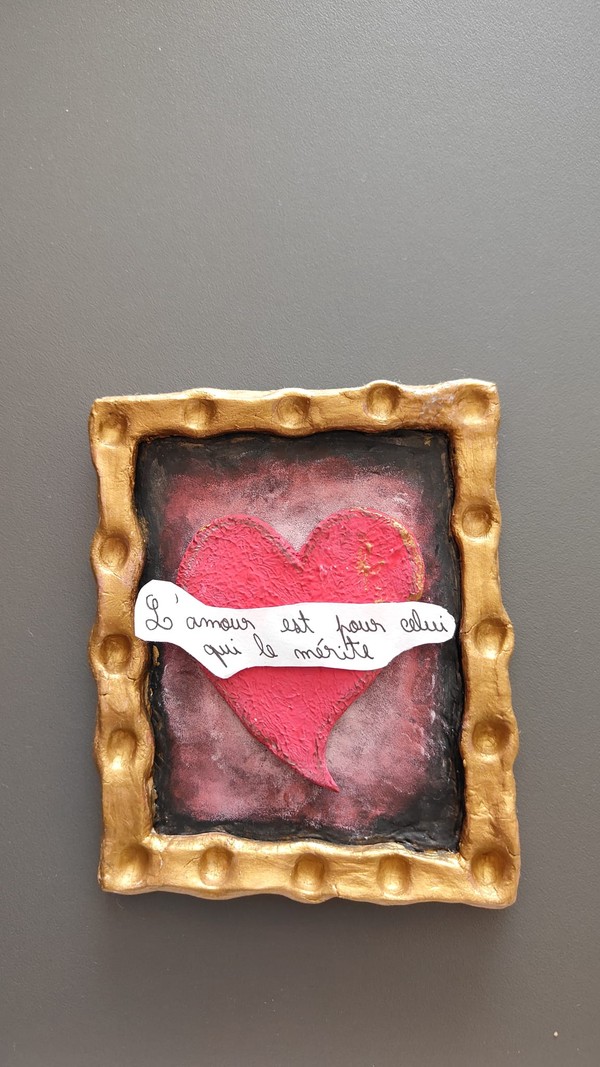 L'amour est pour celui
qui le mérite